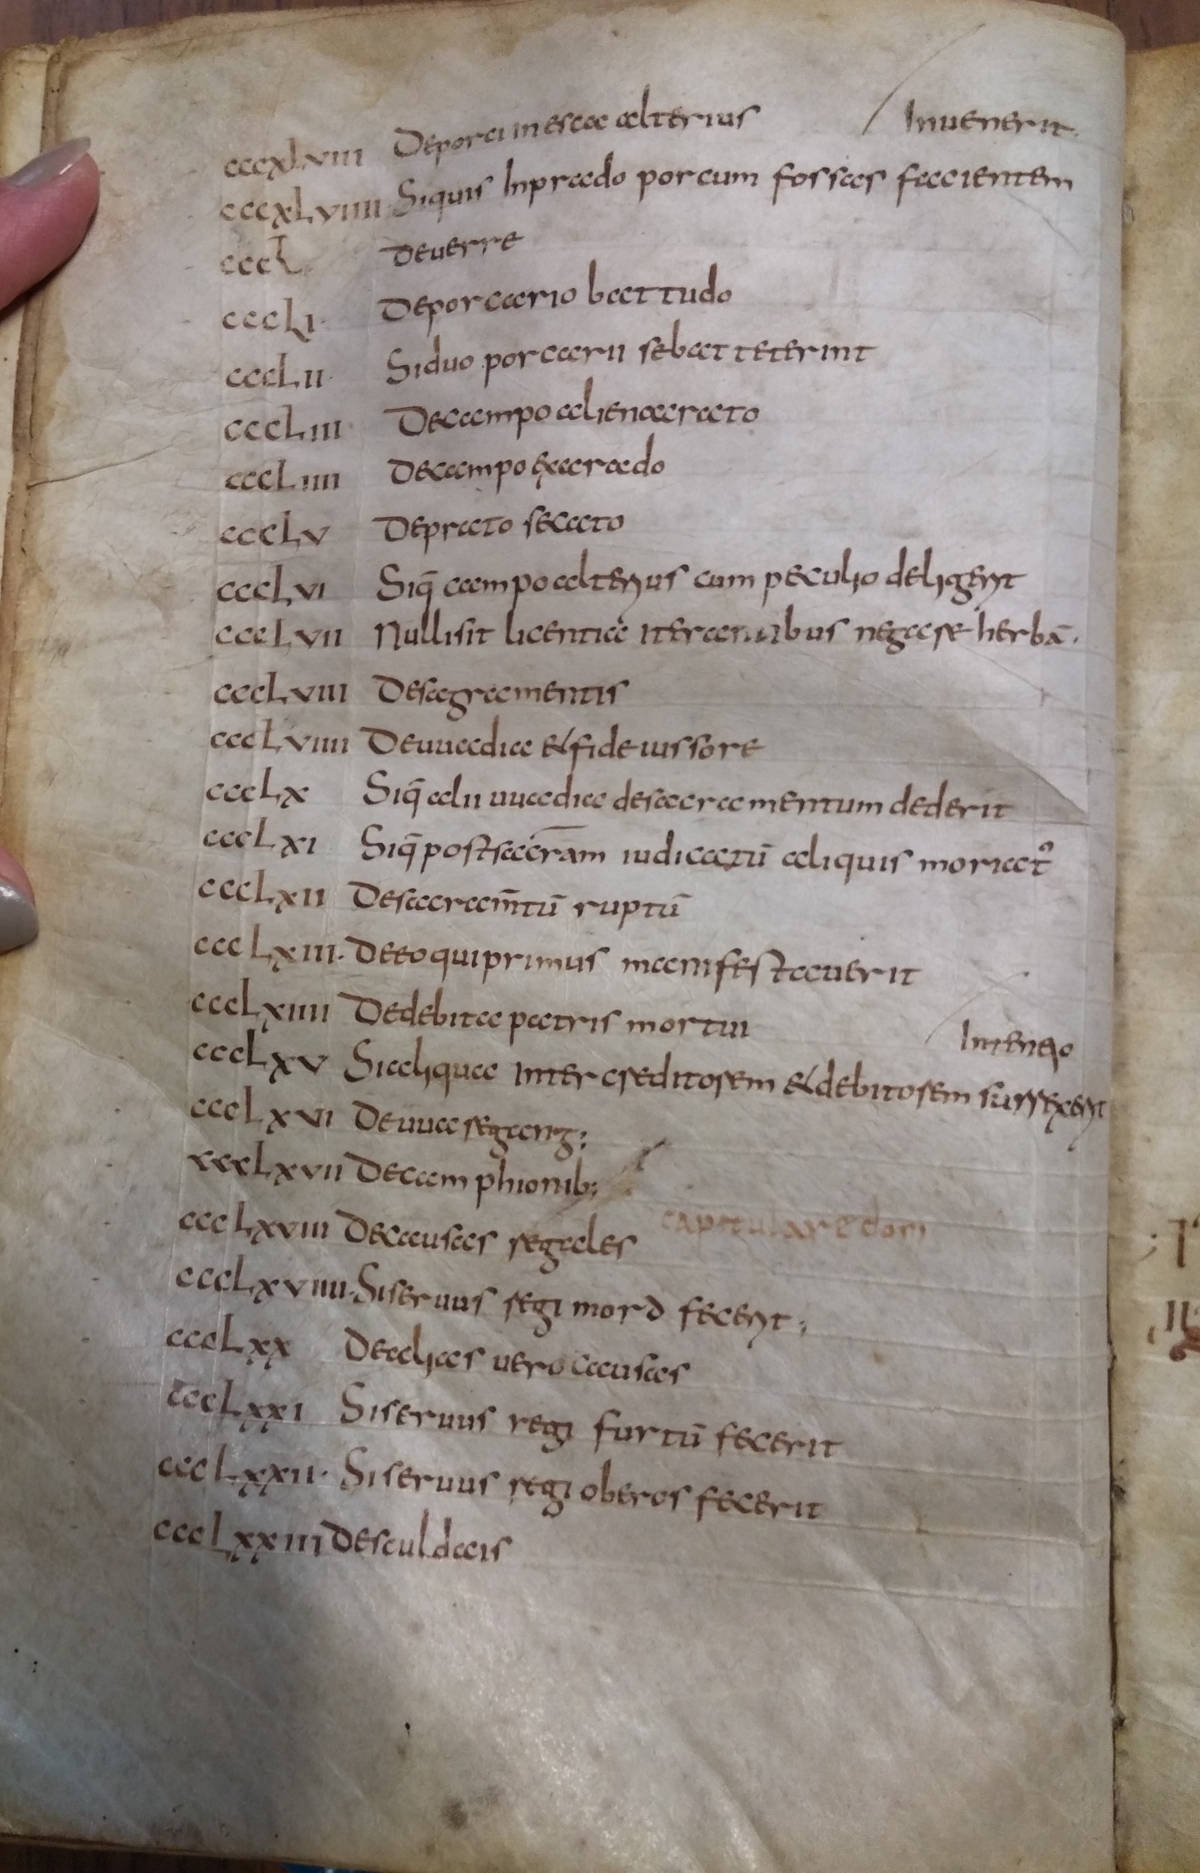 Invenerit.
cccxlviii De porci in esca alterius
cccxlviiii Siquis In prado porcum fossas facientem
cccl De verre
cccli. De porcario battudo
ccclii. Si duo porcarii se batteterint
cccliii De campo alieno arato
cccliiii De campo exarado
ccclv De prato secato
ccclvi Siq̄ campo alterius cum peculio deligerit
ccclvii Nulli sit licentia iterantibus negase herbā.
ccclviii De sagramentis
ccclviiii De uuadia & fideiussore
ccclx Siq̄ alii uuadia de sacramentum dederit
ccclxi Siq̄ post sacram̄ iudicatū aliquis moriat᷒
ccclxii De sacram̄tū ruptū
ccclxiii. De eo qui primus manifestaverit
ccclxiiii De debita patris mortui
Intentio
ccclxv Si aliqua inter creditorem & debitorem surrexerit
ccclxvi De uua regang;
ccclxvii De camphionib;
capitulare domi
ccclxviii De causas regales
ccclxviiii. Si servus regi mord fecerit;
ccclxx De alias vero causas
ccclxxi Si servus regi furtū fecerit
ccclxxii. Si servus regi oberos fecerit
ccclxxiii De sculdais